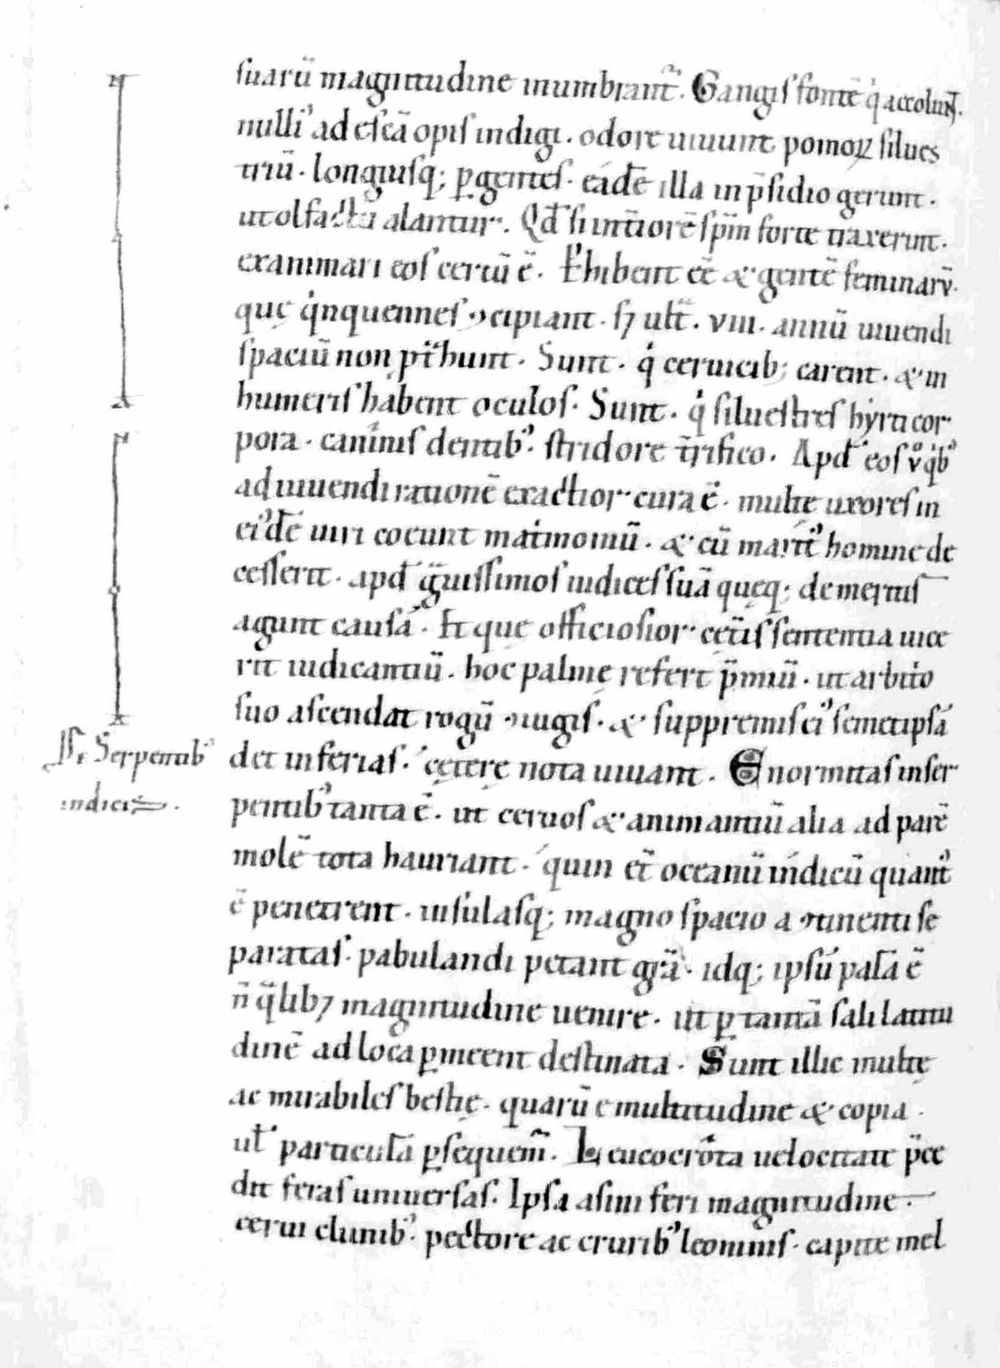 suarū magnitudine inumbrant᷑. Gangis fontē q̇ accolunt.
nulli᾽ ad escā opis indigi. odore uiuunt pomoꝝ silues
triū. longiusq; ꝑgentes. eadē illa in p̄sidio gerunt.
ut olfactu alantur. Qđ si tet̄ıorē sp̄m forte traxerunt.
exanimari eos certū ē. P̱hibent eē & gentē feminarū.
quę q̇nquennes ꝯcipiant. sꝫ ult̄. viii. annū uiuendi
spaciū non pt̄hunt. Sunt. q̇ ceruicib; carent. & in
humeris habent oculos. Sunt. q̇ siluestres hyrti cor
pora. caninis dentib᾽. stridore t̄rifico. Apđ eos v̊ q̇b᾽
ad uiuendi rationē exactior cura ē. multę uxores in
ei᾽dē uiri coeunt mat͛monıū. & cū marit᾽ homine de
cesserit. apđ g̃uissimos iudices suā quęq; de meritis
agunt causā. Et que officiosior cet̄is sententia uice
rit iudicantiū. hoc palmę refert p̄miū. ut arbit͛o
suo ascendat rogū ꝯiugis. & suppremis ei᾽ semetipsā
det inferias. cętere nota uiuant. Enormitas in ser
pentib᾽ tanta ē. ut ceruos & animantiū alia ad parē
molē tota hauriant. quin et̄ oceanū indicū quant᾽
ē penetrent. insulasq; magno spacio a ꝯtinenti se
paratas. pabulandi petant gr̃a. idq; ipsū palā ē
n̄ q̃libꝫ magnitudine uenire. ut ꝑ tantā sali latitu
dinē ad loca ꝑueent destinata. Sunt illic multę
ac mirabiles bestię. quarū e multitudine & copia.
ul̄ particulā ꝑsequem᷑. Leucocrota uelocitate p̄ce
dit feras uniuersas. Ipsa asini feri magnitudine.
cerui clunib᾽. pectore ac crurib᾽ leoninis. capite mel
Serpentib᾽
indicis.